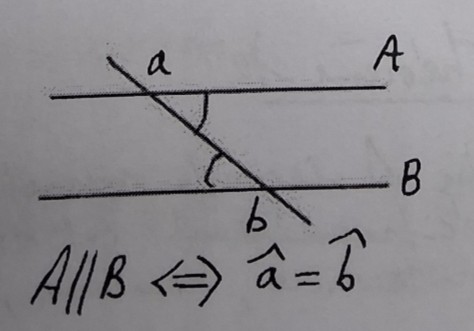 a
A
B
b
A//B <=> â = b̂